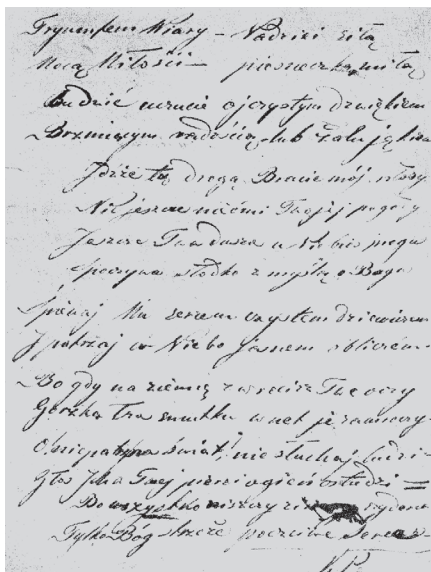 Tryumfem Wiary – Nadziei siłą
Mocą Miłości – piosneczką miłą
Budzić uczucie ojczystym dźwiękiem
Brzmiącym radością lub żalu jękiem
Idźże tą drogą Bracie mój młody
Nic jeszcze nie ćmi Twojej pogody
Jeszcze Twa dusza u Niebios progu
Spoczywa słodko z myślą o Bogu
Śpiewaj Mu sercem czystem dziewiczem
I patrzaj w Niebo jasnem obliczem –
Bo gdy na ziemię zwrócisz Twe oczy
Gorzka łza smutku wnet je zamroczy
świat! nie słuchaj ludzi
Głos Twej piersi ogień ostudzi =
Bo wszystko niszczy
Tylko Bóg strzeże poczciwe Serca –